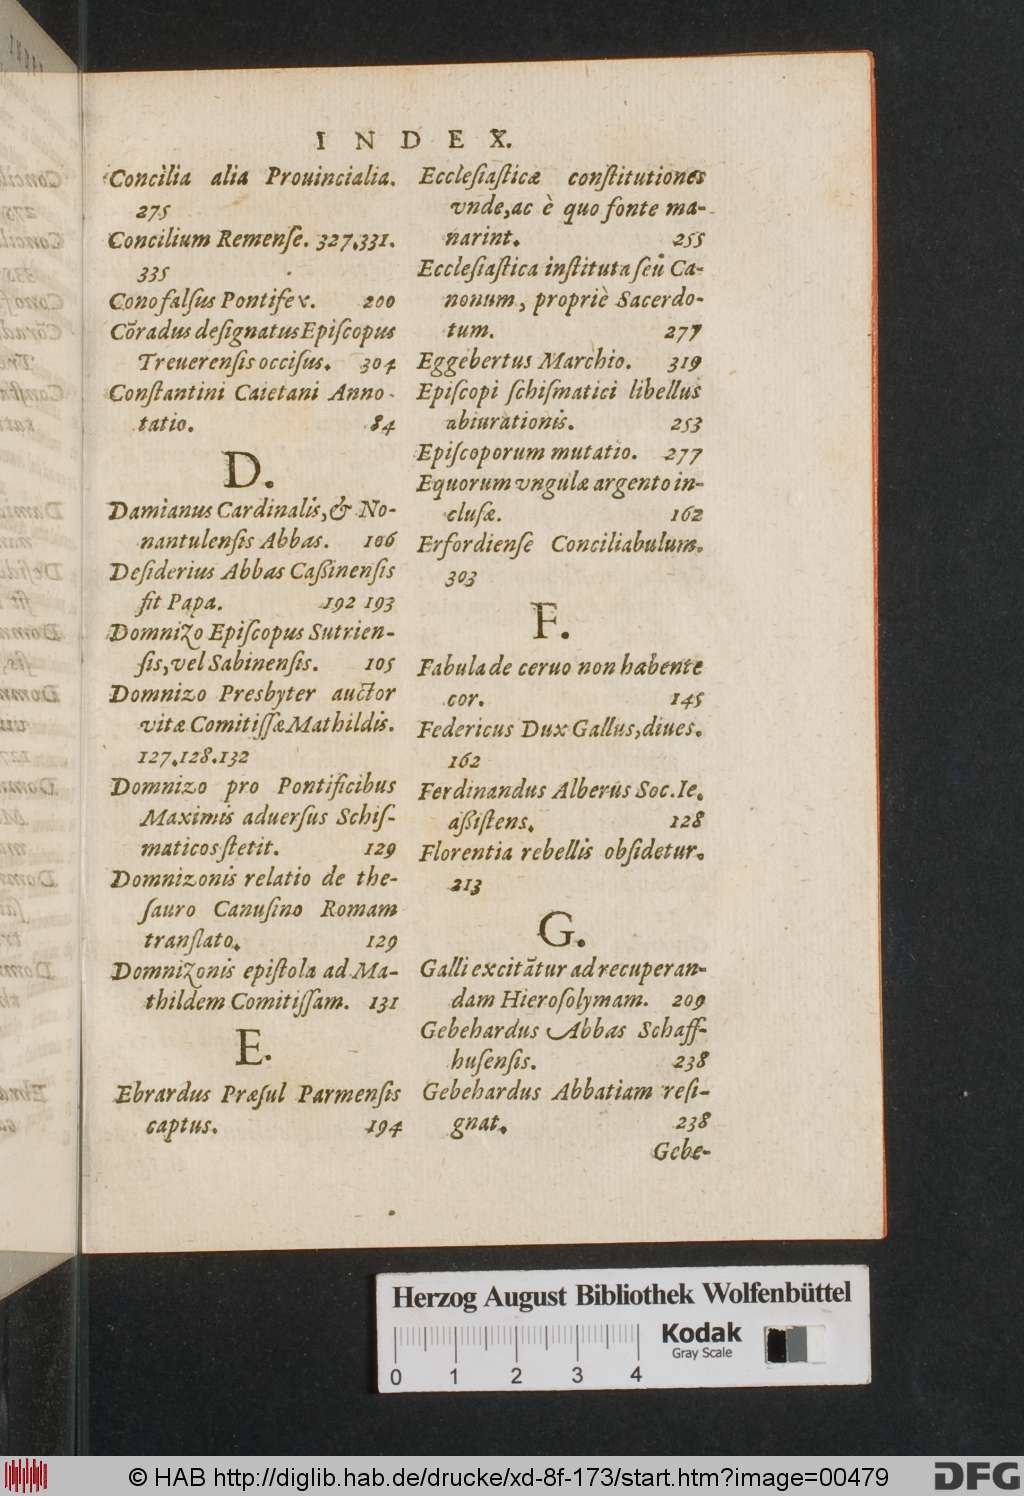 INDEX.
Concilia alia Prouincialia.
275
Concilium Remenſe. 327.331.
335
Cono falſus Pontifex. 200
Cõradus deſignatus Epiſcopus
Treuerenſis occiſus. 304
Conſtantini Caietani Anno-
tatio. 84
D.
Damianus Cardinalis, & No-
nantulenſis Abbas. 106
Deſiderius Abbas Caßinenſis
fit Papa. 192 193
Domnizo Epiſcopus Sutrien-
ſis, vel Sabinenſis. 105
Domnizo Presbyter auctor
vitæ Comitiſſæ Mathildis.
127.128.132
Domnizo pro Pontificibus
Maximis aduerſus Schiſ-
maticos ſtetit. 129
Domnizonis relatio de the-
ſauro Canuſino Romam
tranſlato. 129
Domnizonis epiſtola ad Ma-
thildem Comitiſſam. 131
E.
Ebrardus Præſul Parmenſis
captus. 194
Eccleſiaſticæ conſtitutiones
vnde, ac è quo fonte ma-
narint. 255
Eccleſiaſtica inſtituta ſeu Ca-
nonum, propriè Sacerdo-
tum. 277
Eggebertus Marchio. 319
Epiſcopi ſchiſmatici libellus
abiurationis. 253
Epiſcoporum mutatio. 277
Equorum vngulæ argento in-
cluſæ. 162
Erfordienſe Conciliabulum.
303
F.
Fabula de ceruo non habente
cor. 145
Federicus Dux Gallus, diues.
162
Ferdinandus Alberus Soc. Ie.
aßiſtens. 128
Florentia rebellis obſidetur.
213
G.
Galli excitãtur ad recuperan-
dam Hieroſolymam. 209
Gebehardus Abbas Schaff-
huſenſis. 238
Gebehardus Abbatiam reſi-
gnat. 238
Gebe-
Herzog August Bibliothek Wolfenbüttel
Kodak
Gray Scale
0 1 2 3 4
© HAB http://diglib.hab.de/drucke/xd-8f-173/start.htm?image=00479
DFG